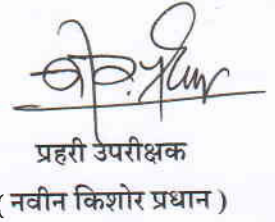 प्रहरी उपरीक्षक
( नवीन किशोर प्रधान )